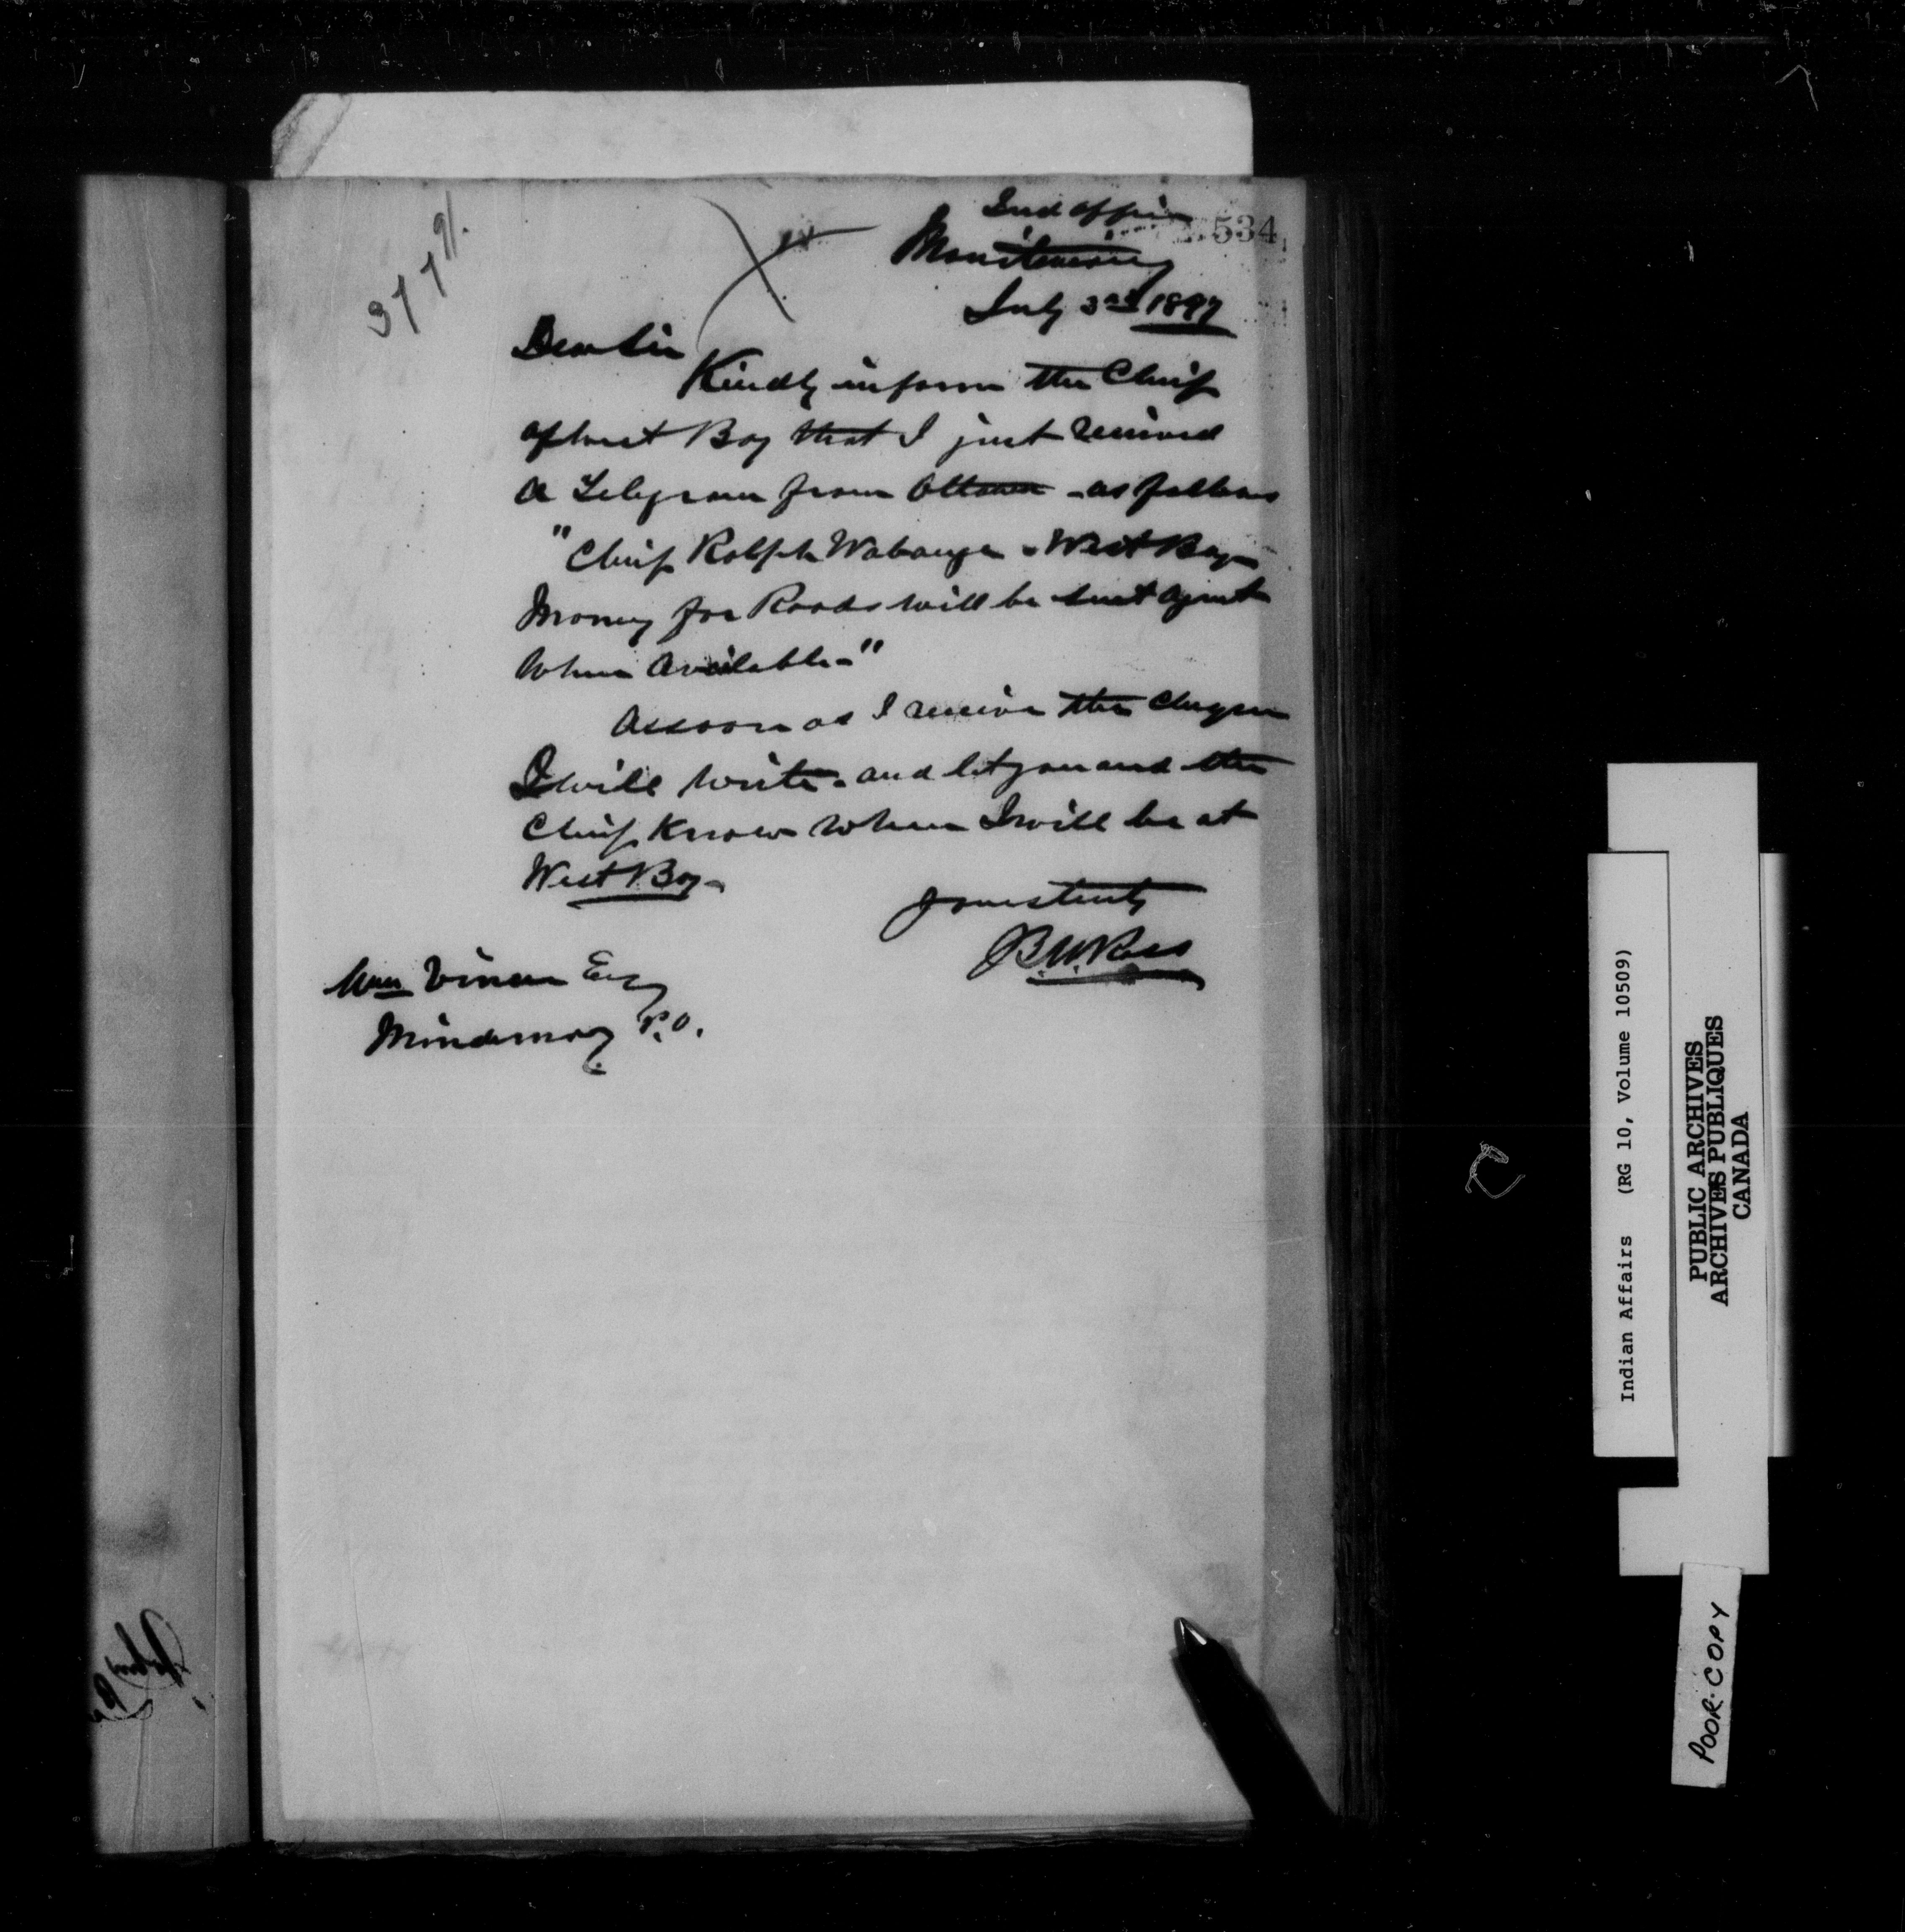 Ind Office
534
Manitowaning
July 3rd 1897
Dear Sir
Kindly inform the Chief
of West Bay that I just received
a Telegram from Ottawa - as follows
"Chief Ralph - West Bay
Money for Roads will be sent agent
when available-"
As soon as I receive the
I will write - and let you and the
Chief know when I will be at
West Bay-
Yours truly
B.W. Ross
Wm Esq
Mindemoy P.O.
Indian Affairs (RG 10, Volume 10509)
PUBLIC ARCHIVES
ARCHIVES PUBLIQUES
CANADA
POOR COPY